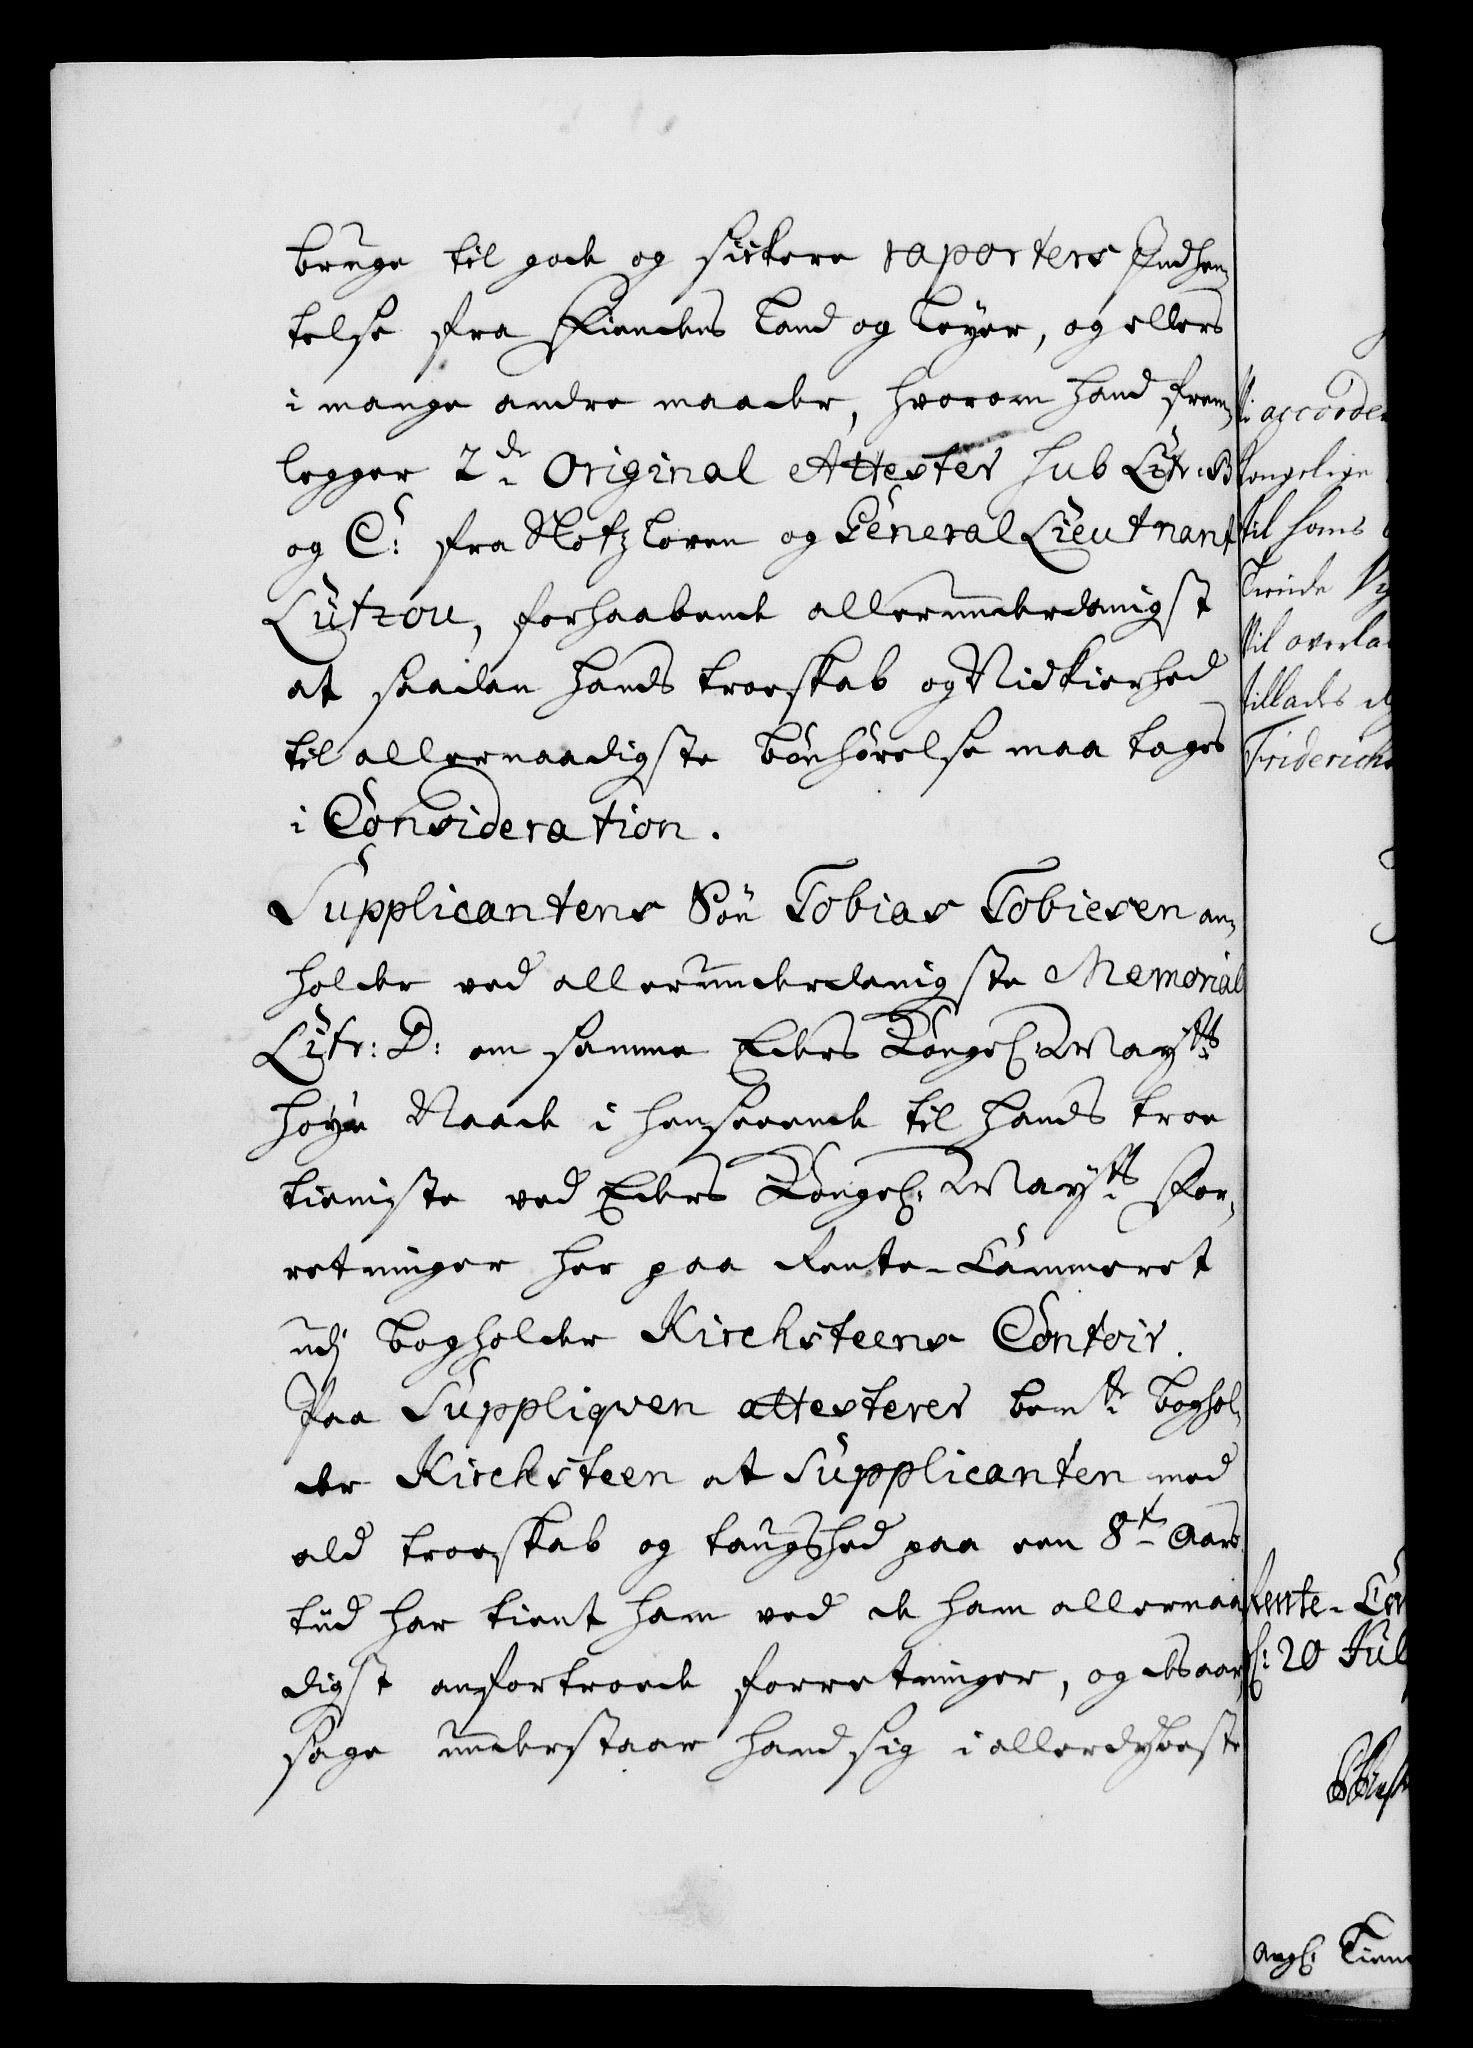 bruge til gode og sickere raporters Indhen-
telse fra Fiendens Land og Leyer, og ellers
i mange andre maader, hvorom hand frem-
legger 2de Original Attester sub Litr: B
og C: fra Slotzloven og General Lieutnant
Lützou, forhaabende allerunderdanigst
at saadan hands troeskab og Nidkierhed
til allernaadigste bönhörelse maa tages
i Consideration.
Supplicantens Sön Tobias Tobiesen an-
holder ved allerunderdanigste Memorial
Litr: D: om samme Eders Kongel: Mayts
høye Naade i henseende til hands troe
tieniste ved Eders Kongel: Mayts For-
retninger her paa Rente-Cammeret
udj bogholder Kirchsteens Contoir.
Paa Suppliqven attesterer bemte boghol-
der Kirchsteen at Supplicanten med
ald troeskab og taugshed paa een 8t Aars
tiid har tient ham ved de ham allernaa-
digst anfortroede forretninger, og desaar-
sage understaar hand sig i allerdybeste
accorde
kongelige
til hans
Tiende
til overla
tillades
Friderichs
Rente-
20 Jul
angl: Tien